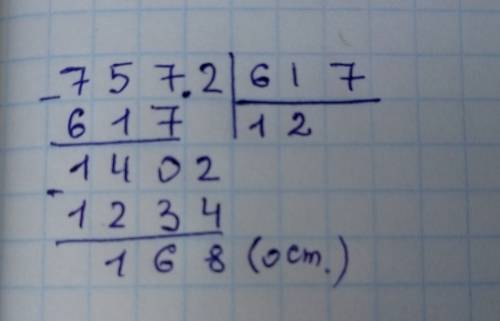 - 7 5 7.2 | 6 1 7
6 1 7 | 1 2
- 1 4 0 2
1 2 3 4
1 6 8 (ост.)